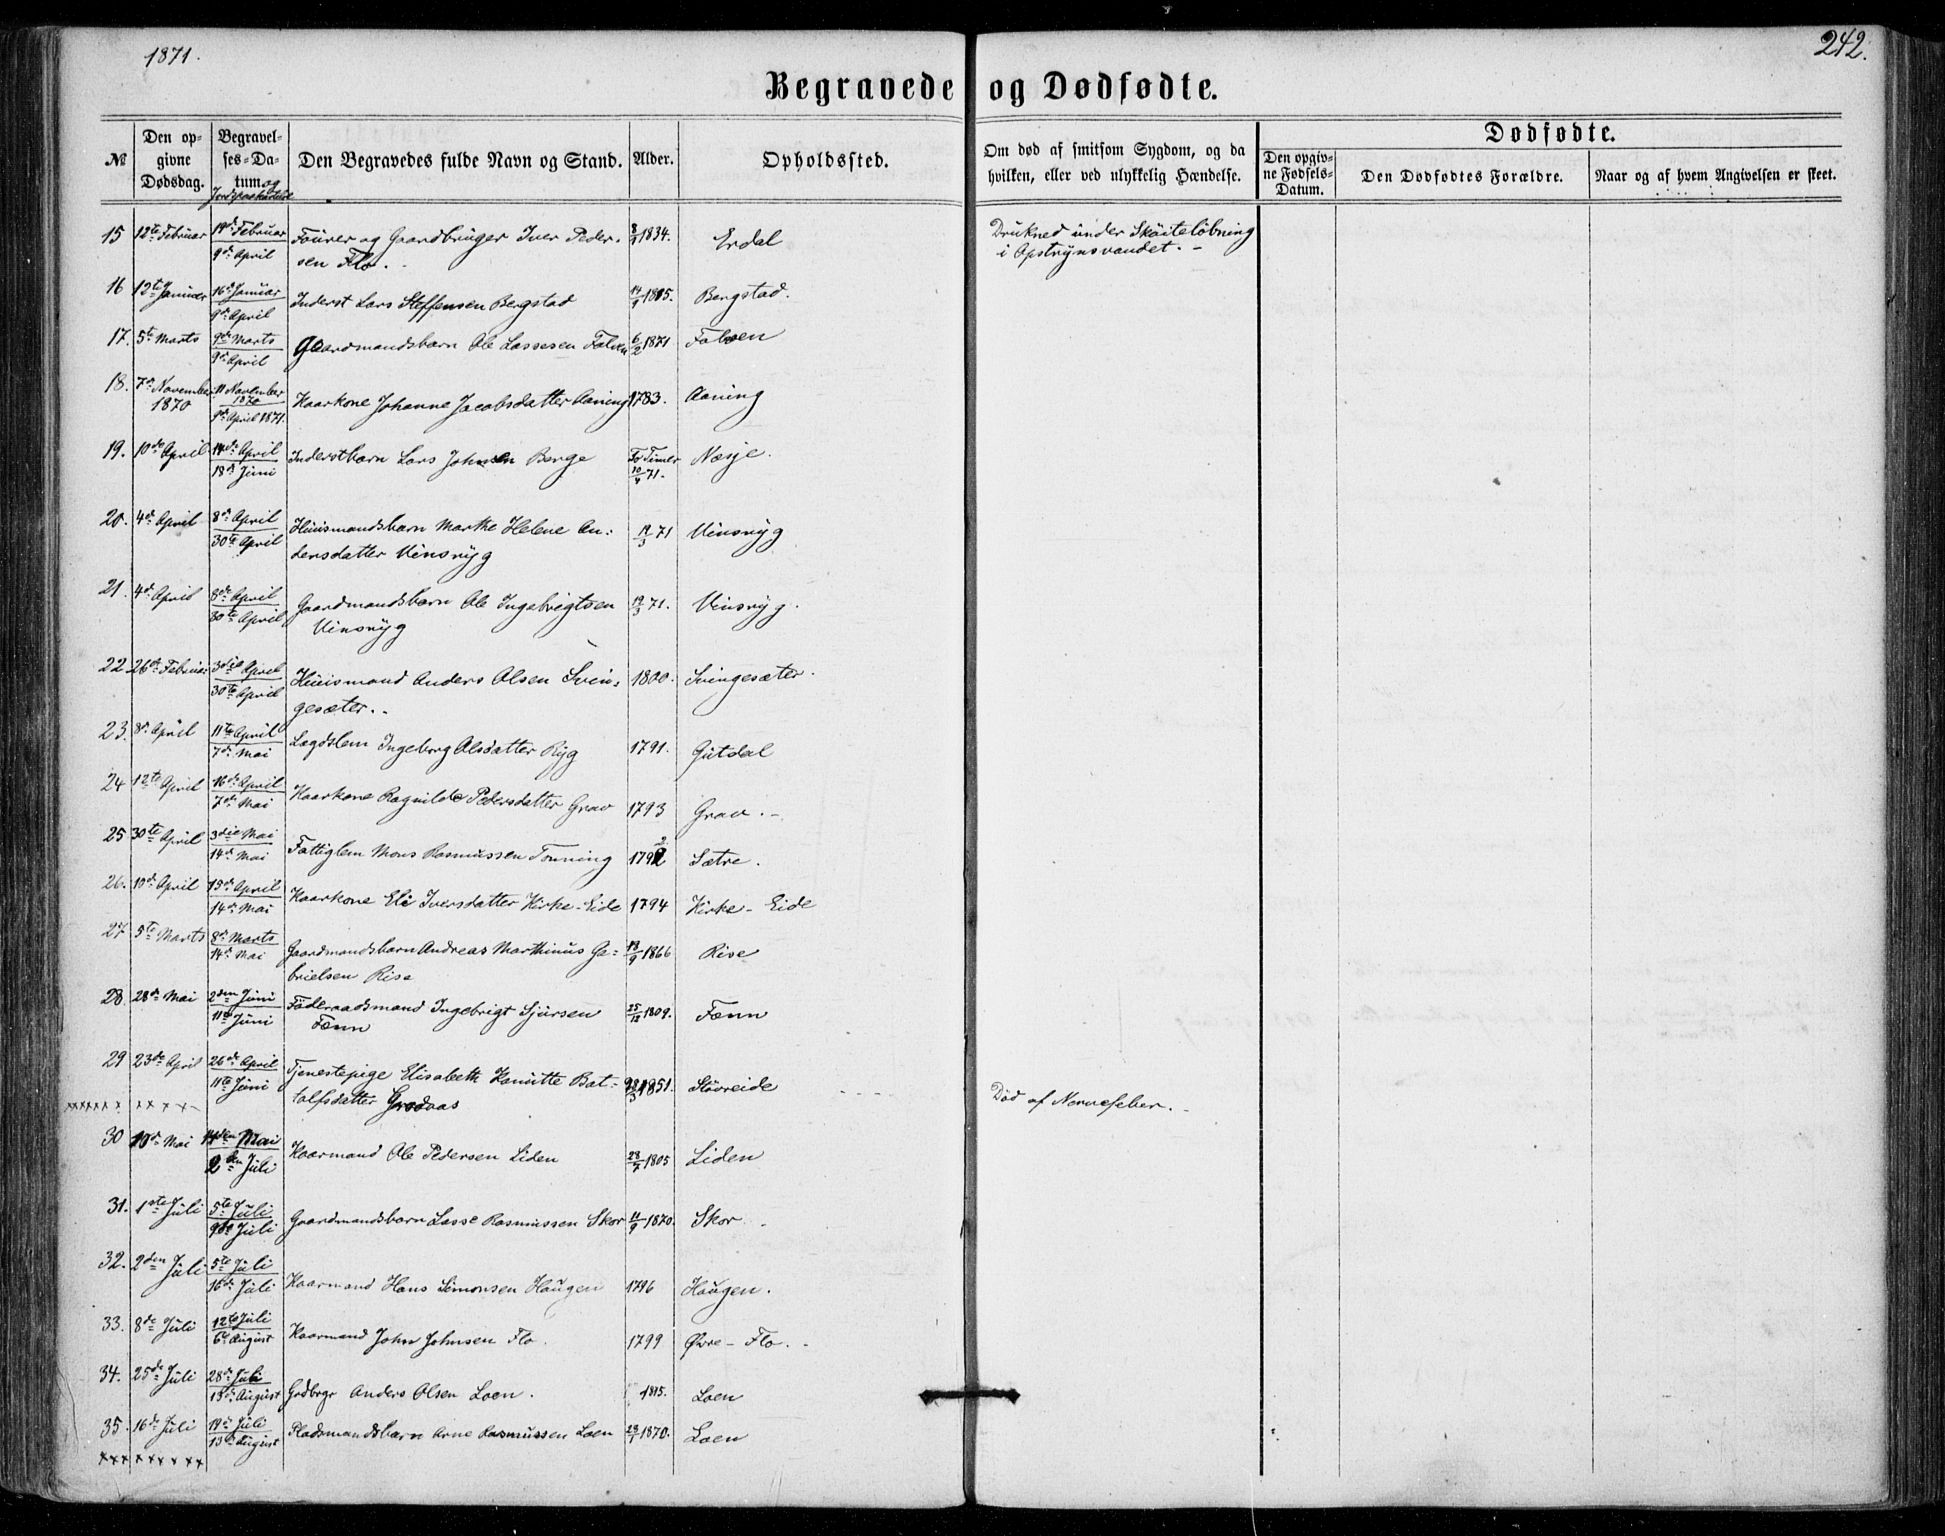 1871.
242.
Begravede og Dødfødte.
№
Den opgivne Dødsdag.
Begravelses-Datum og Jordpaakastelse
Den Begravedes fulde Navn og Stand.
Alder.
Opholdssted.
Om død af smitsom Sygdom, og da hvilken, eller ved ulykkelig Hændelse.
Dødfødte.
Den opgivne Fødsels-Datum.
Den Dødfødtes Forældre.
Naar og af hvem Angivelsen er skeet.
15 12te Februar 19de Februar 9de April Fourer og Gaardbruger Iver Pedersen Flo. 8/1 1834. Erdal Drukned under Skøiteløbning i Opstrynsvandet. -
16 12te Januar 16de Januar 9de April Inderst Lars Steffensen Bergstad 14/9 1815. Bergstad.
17. 5te Marts 9de Marts 9de April Gaardmandsbarn Ole Lassesen Folven 6/2 1871 Folven
18. 7de November 1870 11 November 1870 9de April 1871. Kaarkone Johanne Jacobsdatter Aaning 1783. Aaning
19. 10de April 14de April 18de Juni Inderstbarn Lars Johnsen Berge To Timer 10/4 71. Nesje.
20. 4de April 8de April 30te April Huusmandsbarn Marthe Helene Andersdatter Vinsryg 19/3 71 Vinsryg
21. 4de April 8de April 30te April Gaardmandsbarn Ole Ingebrigtsen Vinsryg 19/3 71. Vinsryg.
22 26de Februar 3die April 30te April Huusmand Anders Olsen Svingesæter. 1800. Svingesæter.
23. 8de April 11te April 7de Mai Lægdslem Ingeborg Olsdatter Ryg 1791. Gutdal
24 12te April 16de April 7de Mai Kaarkone Ragnilde Pedersdatter Grav 1793 Grav. -
25 30te April 3die Mai 14de Mai Fattiglem Mons Rasmussen Tonning 1792 Sætre.
26. 10de April 15de April 14de Mai Kaarkone Eli Iversdatter Kirke-Eide 1794 Kirke-Eide
27 5te Marts 8de Marts 14de Mai Gaardmandsbarn Andreas Marthinus Gabrielsen Rise 18/9 1866 Rise
28. 28de Mai 2den Juni 11te Juni Føderaadsmand Ingebrigt Sjursen Fænn 25/12 1809. Fænn
29 23de April 26de April 11te Juni Tjenestepige Elisabeth Knutte Batolfsdatter Grodaas 1851. Støvreide Død af Nervefeber. -
30 10de Mai 14den Mai 2den Juli Kaarmand Ole Pedersen Liden 28/7 1805 Liden
31. 1ste Juli 5te Juli 9de Juli Gaardmandsbarn Lasse Rasmussen Skor 11/9 1870. Skor
32. 2den Juli 5te Juli 16de Juli Kaarmand Hans Simonsen Haugen 1796 Haugen.
33. 8de Juli 12te Juli 6te August Kaarmand John Johnsen Flo. 1799 Øvre-Flo.
34. 25de Juli 28de Juli 13de August Grdbrgr Anders Olsen Loen. 1815. Loen
35. 16de Juli 19de Juli 13de August Pladsmandsbarn Arne Rasmussen Loen 29/1 1870. Loen